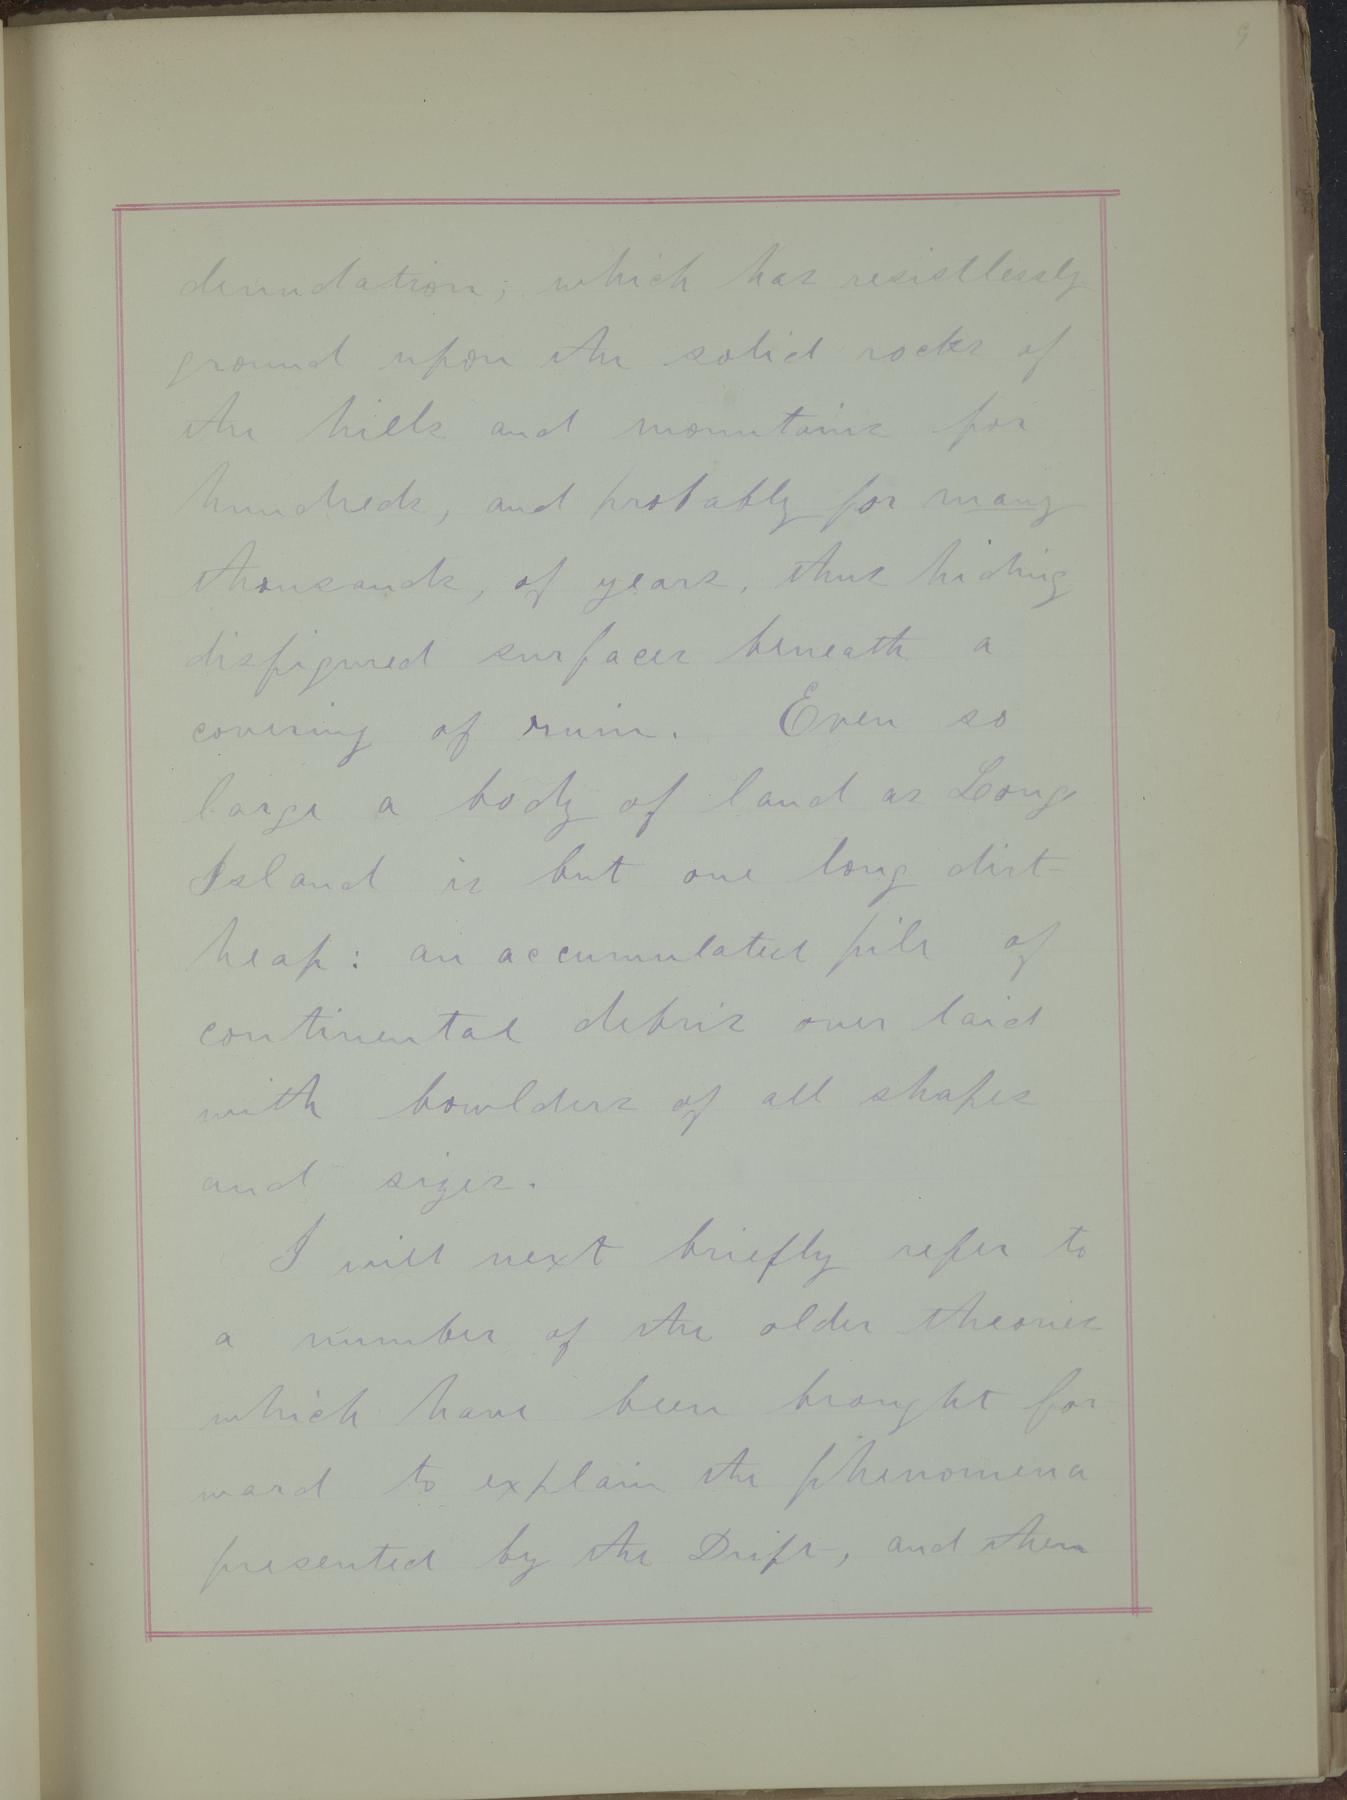 9
denudation; which has resistlessly
ground upon the solid rocks of
the hills and mountains for
hundreds, and probably for many
thousands, of years, thus hiding
disfigured surfaces beneath a
covering of ruin. Even so
large a body of land as Long
Island is but one long dirt-
heap: an accumulated pile of
continental debris over laid
with bowlders of all shapes
and sizes.
I will next briefly refer to
a number of the older theories
which have been brought for
ward to explain the phenomena
presented by the Drift, and then